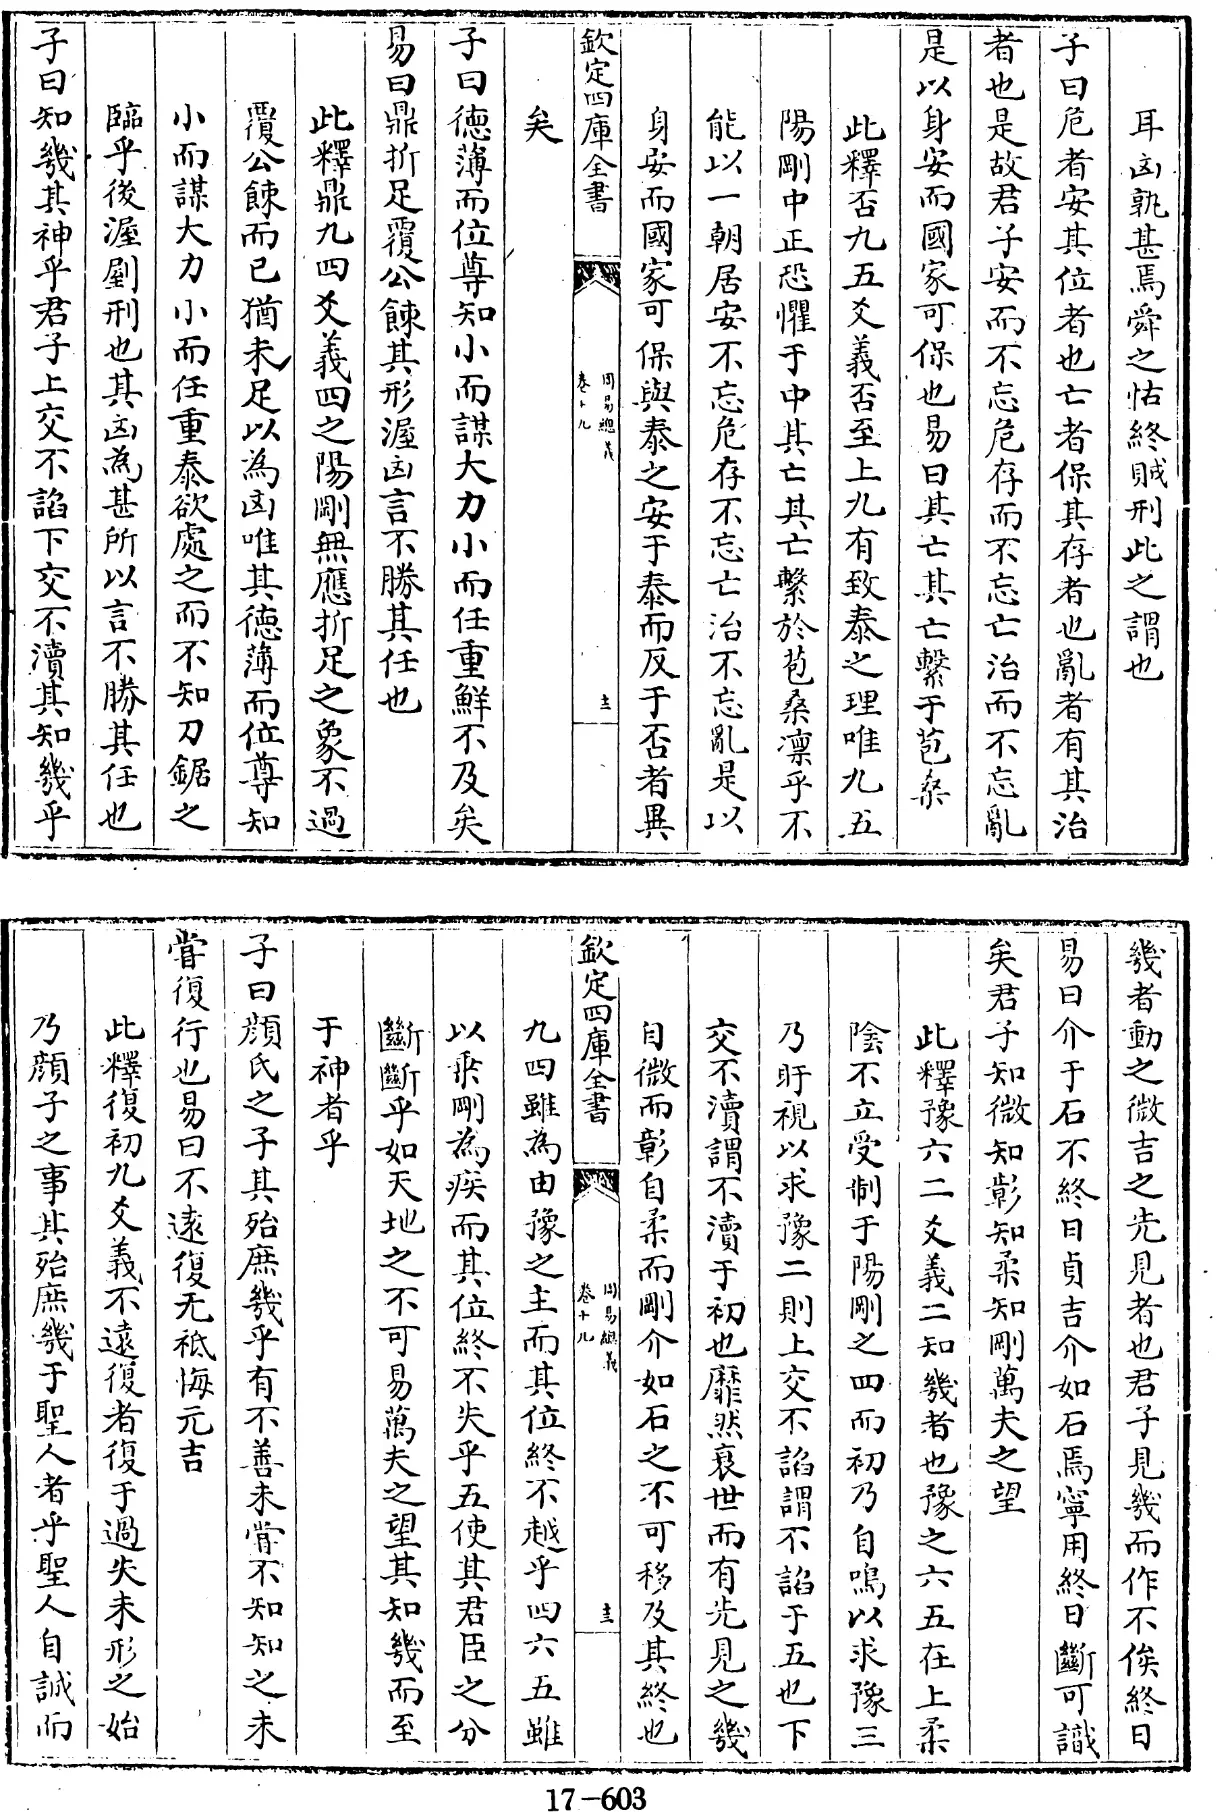 耳凶孰甚焉舜之怙終賊刑此之謂也
子曰危者安其位者也亡者保其存者也亂者有其治
者也是故君子安而不忘危存而不忘亡治而不忘亂
是以身安而國家可保也易曰其亡其亡繫于苞桑
此釋否九五爻義否至上九有致泰之理唯九五
陽剛中正恐懼于中其亡其亡繫於苞桑凛乎不
能以一朝居安不忘危存不忘亡治不忘亂是以
身安而國家可保與泰之安于泰而反于否者異
欽定四庫全書
周易總義
卷十九
矣
子曰德薄而位尊知小而謀大力小而任重鮮不及矣
易曰鼎折足覆公餗其形渥凶言不勝其任也
此釋鼎九四爻義四之陽剛無應折足之象不過
覆公餗而已猶未足以為凶唯其德薄而位尊知
小而謀大力小而任重泰欲處之而不知刀鋸之
臨乎後渥剭刑也其凶為甚所以言不勝其任也
子曰知幾其神乎君子上交不諂下交不瀆其知幾乎
幾者動之微吉之先見者也君子見幾而作不俟終日
易曰介于石不終日貞吉介如石焉寧用終日斷可識
矣君子知微知彰知柔知剛萬夫之望
此釋豫六二爻義二知幾者也豫之六五在上柔
陰不立受制于陽剛之四而初乃自鳴以求豫三
乃盱視以求豫二則上交不諂謂不諂于五也下
交不瀆謂不瀆于初也靡然衰世而有先見之幾
自微而彰自柔而剛介如石之不可移及其終也
欽定四庫全書
周易總義
卷十九
九四雖為由豫之主而其位終不越乎四六五雖
以乘剛為疾而其位終不失乎五使其君臣之分
斷斷乎如天地之不可易萬夫之望其知幾而至
于神者乎
子曰顔氏之子其殆庶幾乎有不善未嘗不知知之未
嘗復行也易曰不遠復无祗悔元吉
此釋復初九爻義不遠復者復于過失未形之始
乃顔子之事其殆庶幾于聖人者乎聖人自誠而
17-603